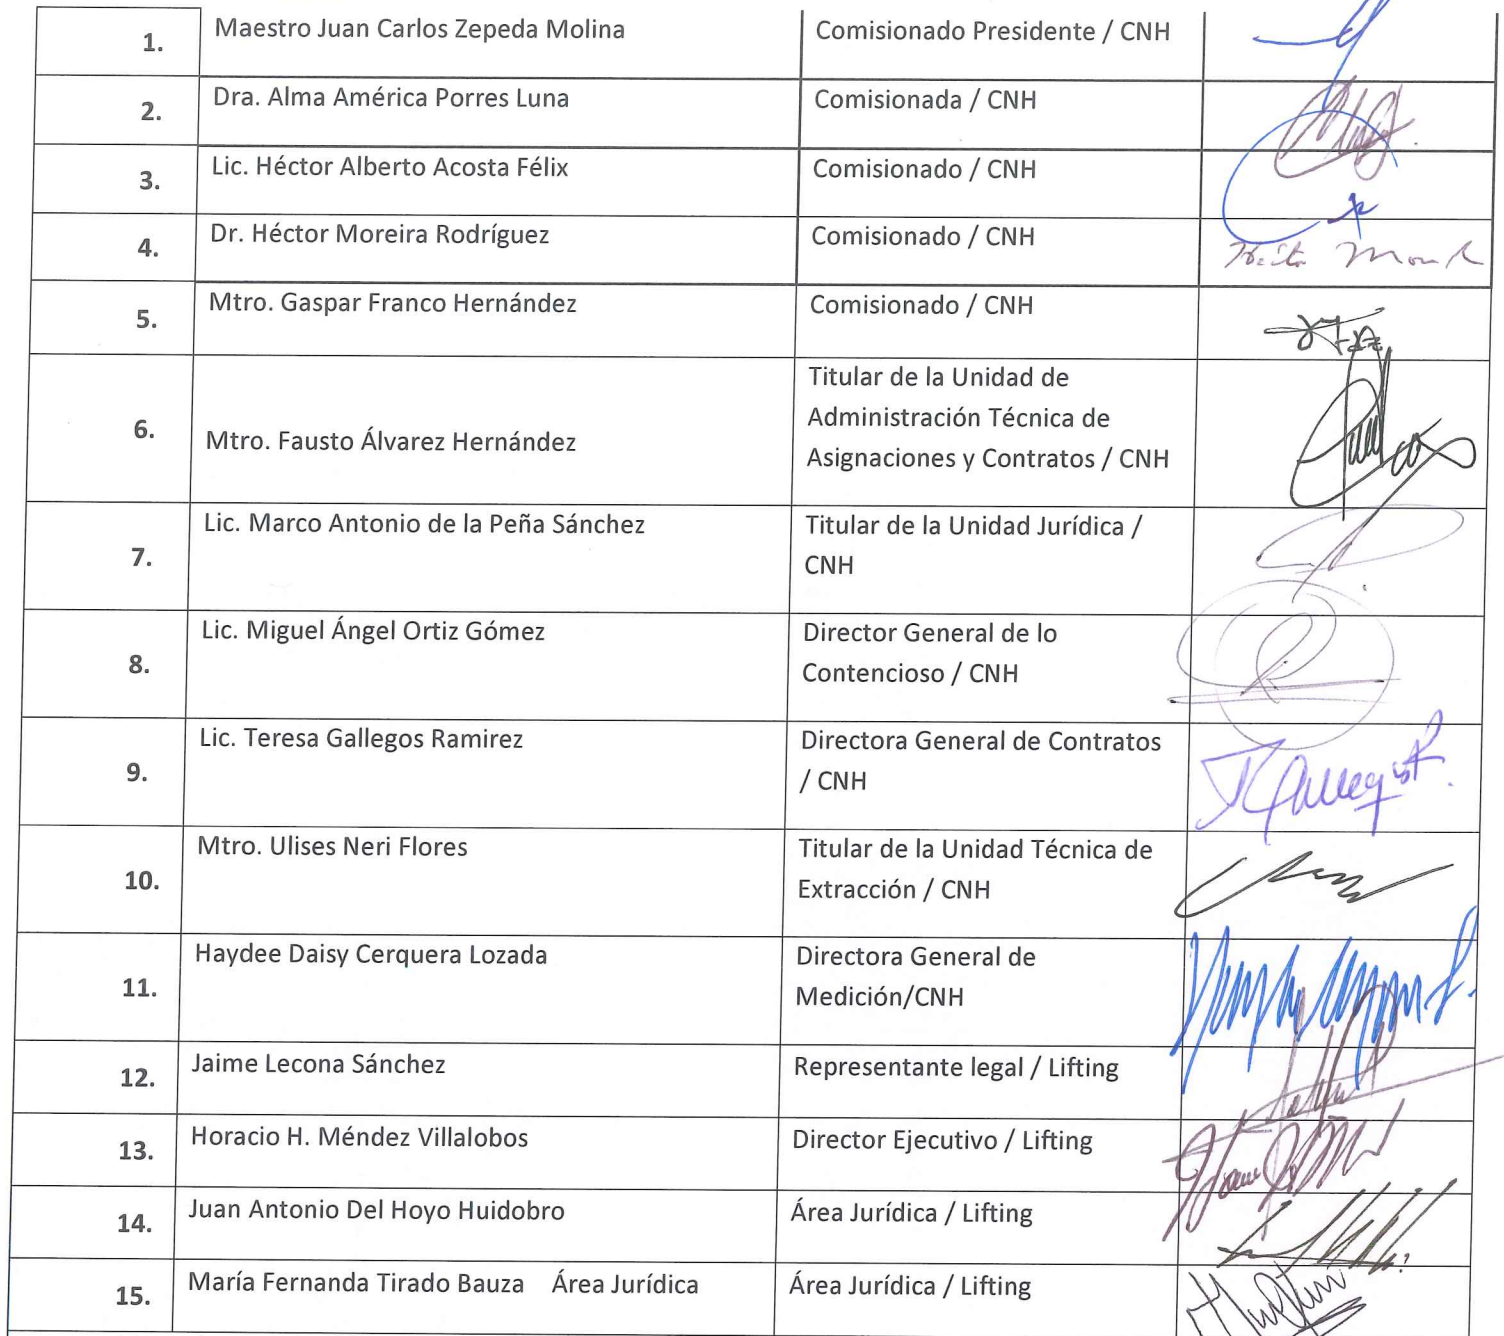 1. Maestro Juan Carlos Zepeda Molina Comisionado Presidente / CNH
2. Dra. Alma América Porres Luna Comisionada / CNH
3. Lic. Héctor Alberto Acosta Félix Comisionado / CNH
4. Dr. Héctor Moreira Rodríguez Comisionado / CNH
5. Mtro. Gaspar Franco Hernández Comisionado / CNH
6. Mtro. Fausto Álvarez Hernández
Titular de la Unidad de
Administración Técnica de
Asignaciones y Contratos / CNH
7. Lic. Marco Antonio de la Peña Sánchez
Titular de la Unidad Jurídica /
CNH
8. Lic. Miguel Ángel Ortiz Gómez
Director General de lo
Contencioso / CNH
9. Lic. Teresa Gallegos Ramirez
Directora General de Contratos
/ CNH
10. Mtro. Ulises Neri Flores
Titular de la Unidad Técnica de
Extracción / CNH
11. Haydee Daisy Cerquera Lozada
Directora General de
Medición/CNH
12. Jaime Lecona Sánchez Representante legal / Lifting
13. Horacio H. Méndez Villalobos Director Ejecutivo / Lifting
14. Juan Antonio Del Hoyo Huidobro Área Jurídica / Lifting
15. María Fernanda Tirado Bauza Área Jurídica Área Jurídica / Lifting